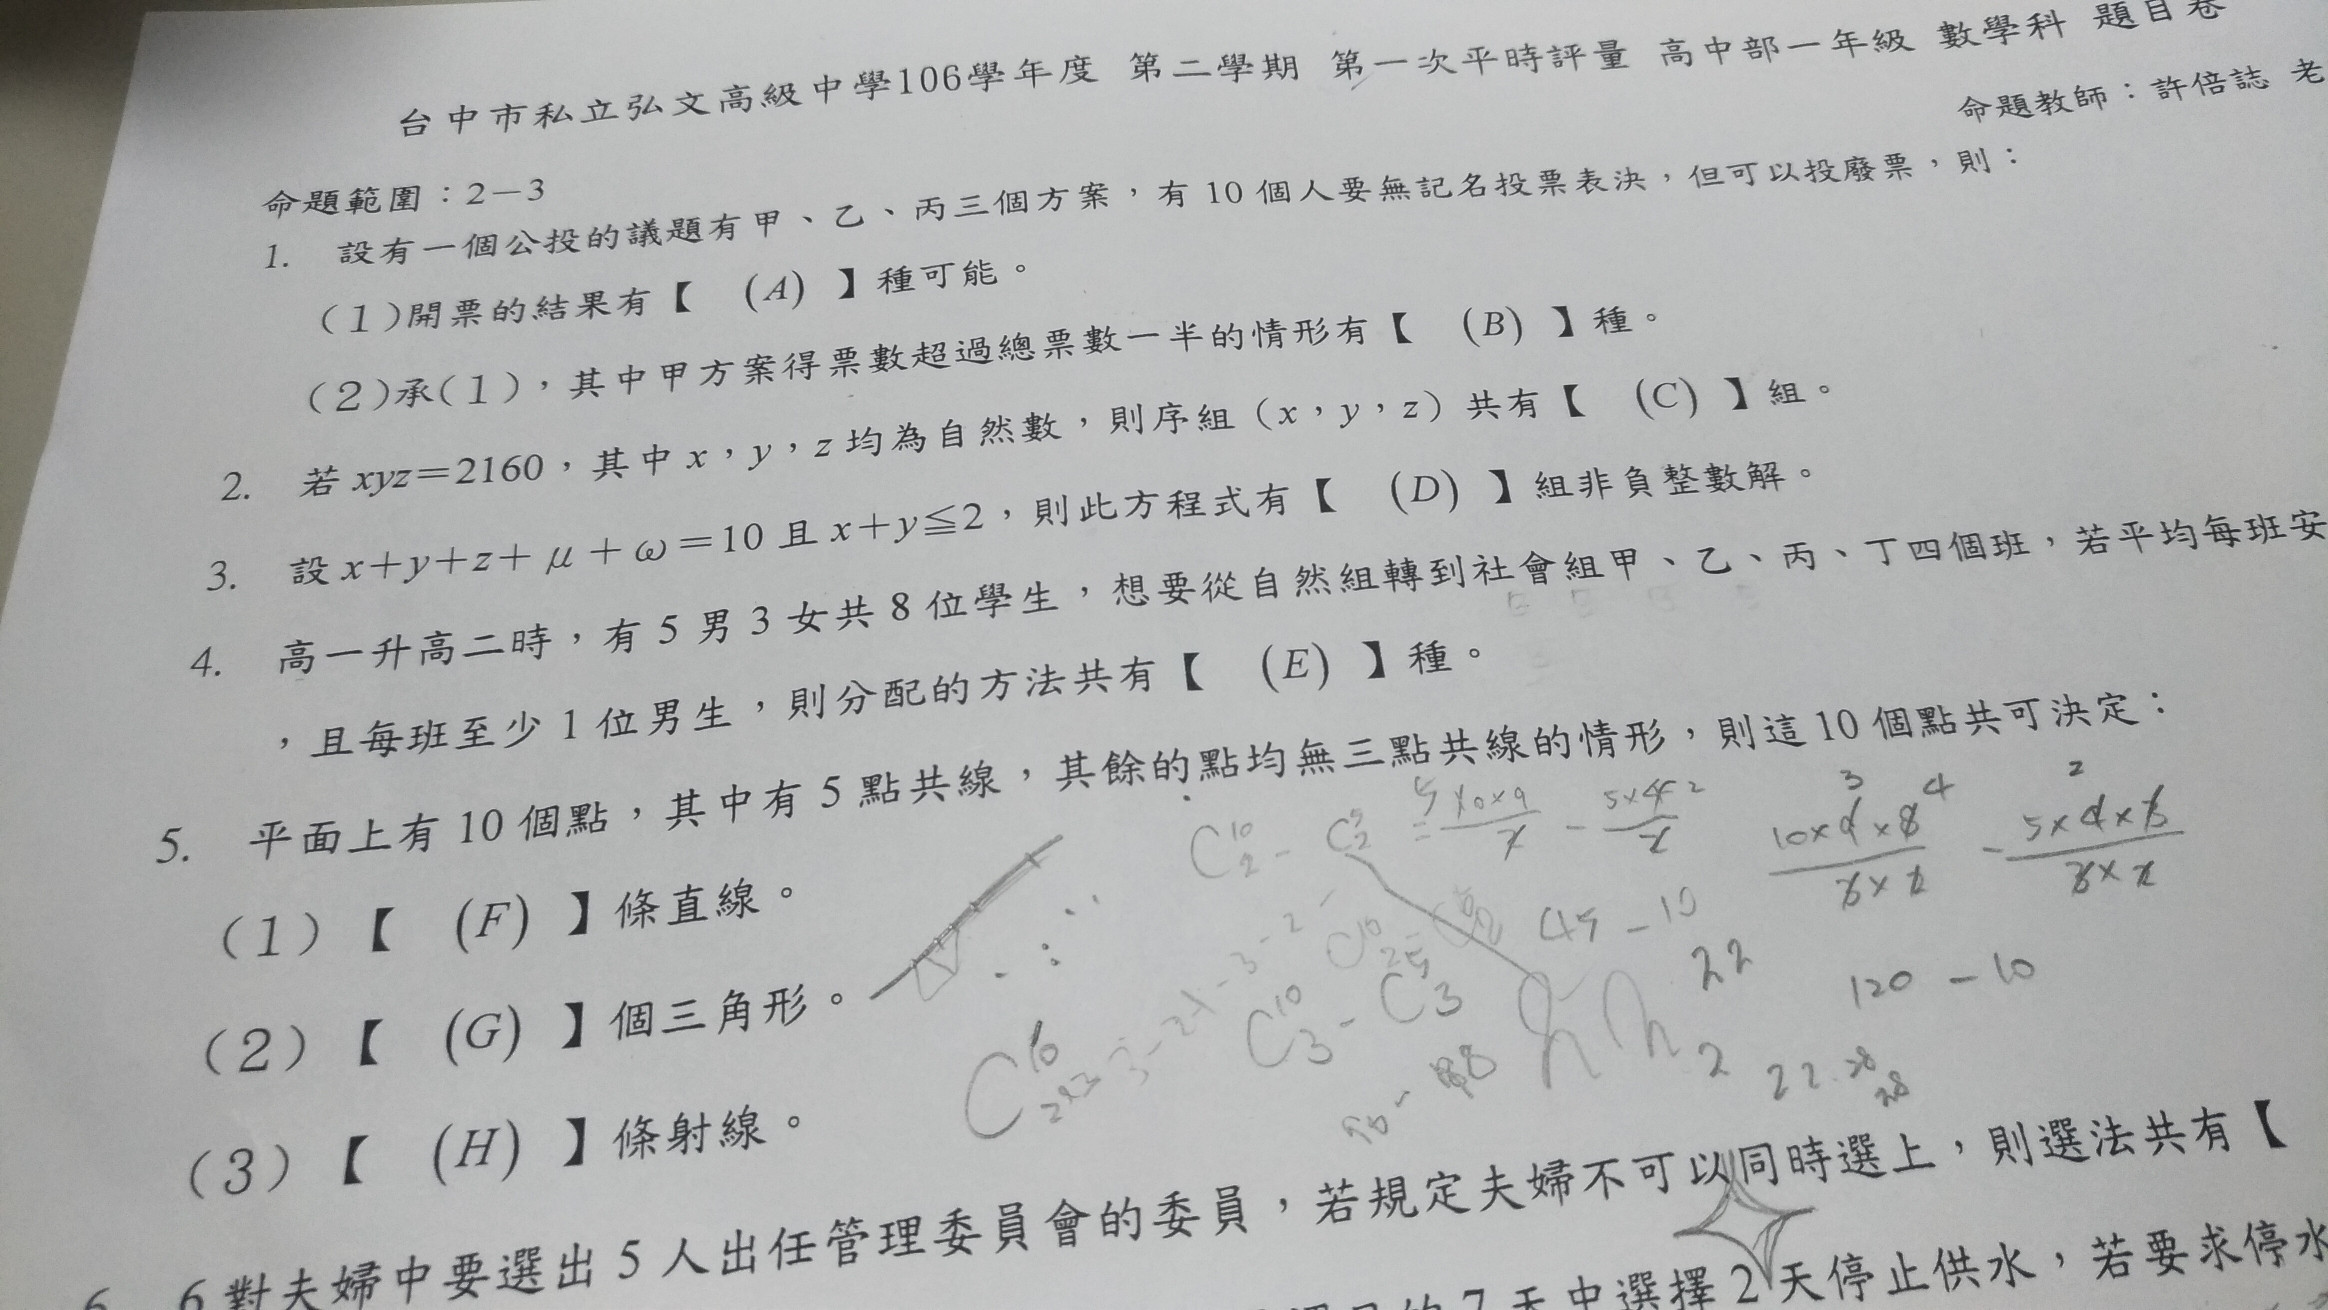 台中市私立弘文高級中學106學年度 第二學期 第一次平時評量 高中部一年級 數學科 題目卷
命題教師：許倍誌 老
命題範圍：2－3
1. 設有一個公投的議題有甲、乙、丙三個方案，有 10 個人要無記名投票表決，但可以投廢票，則：
(1)開票的結果有【 (A) 】種可能。
(2)承(1)，其中甲方案得票數超過總票數一半的情形有【 (B) 】種。
2. 若 xyz＝2160，其中 x，y，z 均為自然數，則序組（x，y，z）共有【 (C) 】組。
3. 設 x＋y＋z＋μ＋ω＝10 且 x＋y≦2，則此方程式有【 (D) 】組非負整數解。
4. 高一升高二時，有 5 男 3 女共 8 位學生，想要從自然組轉到社會組甲、乙、丙、丁四個班，若平均每班安
，且每班至少 1 位男生，則分配的方法共有【 (E) 】種。
5. 平面上有 10 個點，其中有 5 點共線，其餘的點均無三點共線的情形，則這 10 個點共可決定：
(1)【 (F) 】條直線。
(2)【 (G) 】個三角形。
(3)【 (H) 】條射線。
45 － 10
22
120 － 10
6. 6 對夫婦中要選出 5 人出任管理委員會的委員，若規定夫婦不可以同時選上，則選法共有【
7 天中選擇 2 天停止供水，若要求停水